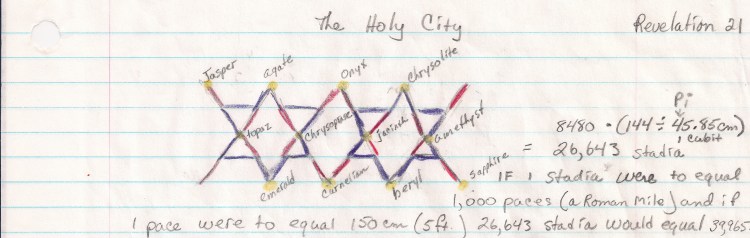 The Holy City Revelation 21
Jasper agate Onyx Chrysolite
topaz Chrysoprase Jacinth amethyst
emerald Carnelian beryl sapphire
Pi
8480 · (144 ÷ 45.85cm)
1 cubit
= 26,643 stadia
IF 1 stadia were to equal
1,000 paces (a Roman Mile) and if
1 pace were to equal 150 cm (5ft.) 26,643 stadia would equal 39,965